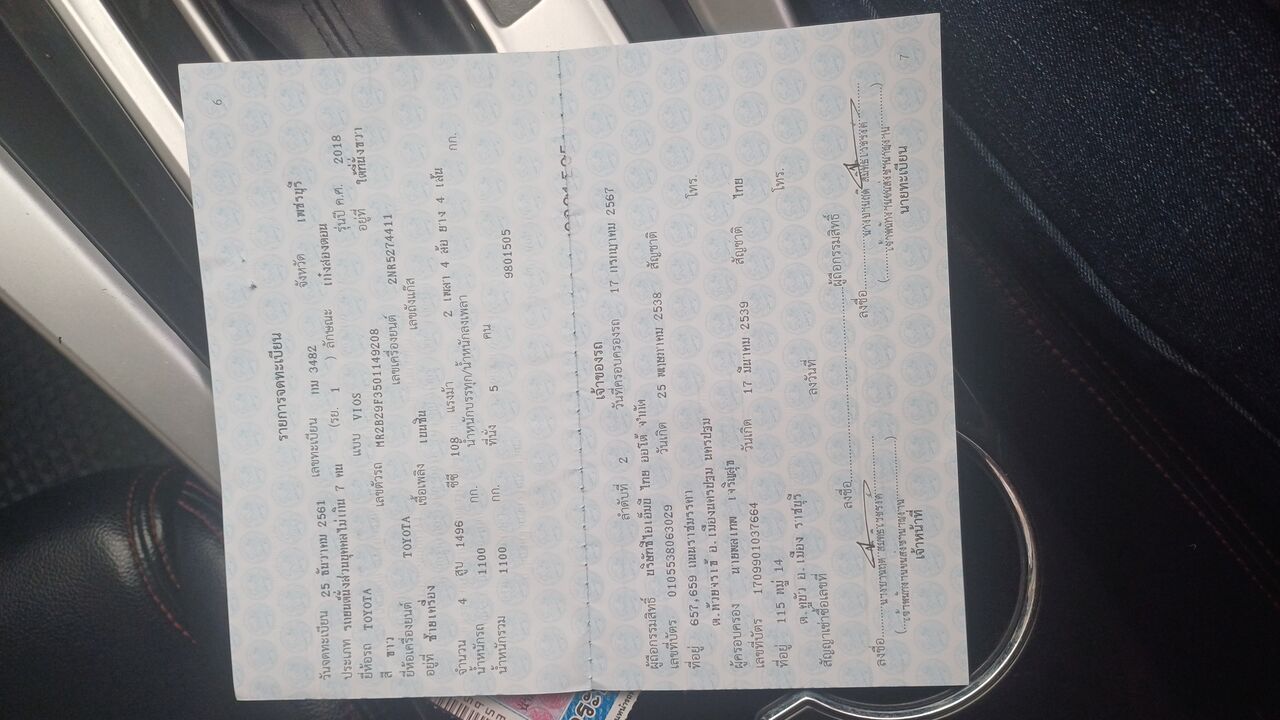 6
รายการจดทะเบียน
วันจดทะเบียน 25 ธันวาคม 2561 เลขทะเบียน กม 3482 จังหวัด เพชรบุรี
ประเภท รถยนต์นั่งส่วนบุคคลไม่เกิน 7 คน (รย. 1 ) ลักษณะ เก๋งสองตอน
ยี่ห้อรถ TOYOTA แบบ VIOS รุ่นปี ค.ศ. 2018
สี ขาว เลขตัวรถ MR2B29F3501149208 อยู่ที่ ใต้ที่นั่งขวา
ยี่ห้อเครื่องยนต์ TOYOTA เลขเครื่องยนต์ 2NR5274411
อยู่ที่ ซ้ายเครื่อง เชื้อเพลิง เบนซิน เลขถังแก๊ส
จำนวน 4 สูบ 1496 ซีซี 108 แรงม้า 2 เพลา 4 ล้อ ยาง 4 เส้น
น้ำหนักรถ 1100 กก. น้ำหนักบรรทุก/น้ำหนักลงเพลา กก.
น้ำหนักรวม 1100 กก. ที่นั่ง 5 คน
9801505
เจ้าของรถ
ลำดับที่ 2 วันที่ครอบครองรถ 17 กรกฎาคม 2567
ผู้ถือกรรมสิทธิ์ ไทย ออโต้ จำกัด
เลขที่บัตร 0105538063029 วันเกิด 25 พฤษภาคม 2538 สัญชาติ
ที่อยู่ 657,659 ถนนราชมรรคา
ต.ห้วยจรเข้ อ.เมืองนครปฐม นครปฐม โทร.
ผู้ครอบครอง นายพลเทพ เจริญสุข
เลขที่บัตร 1709901037664 วันเกิด 17 มีนาคม 2539 สัญชาติ ไทย
ที่อยู่ 115 หมู่ 14
ต.คูบัว อ.เมือง ราชบุรี โทร.
สัญญาเช่าซื้อเลขที่ ลงวันที่
ลงชื่อ ผู้ถือกรรมสิทธิ์
ลงชื่อ ลงชื่อ
เจ้าหน้าที่ นายทะเบียน
7